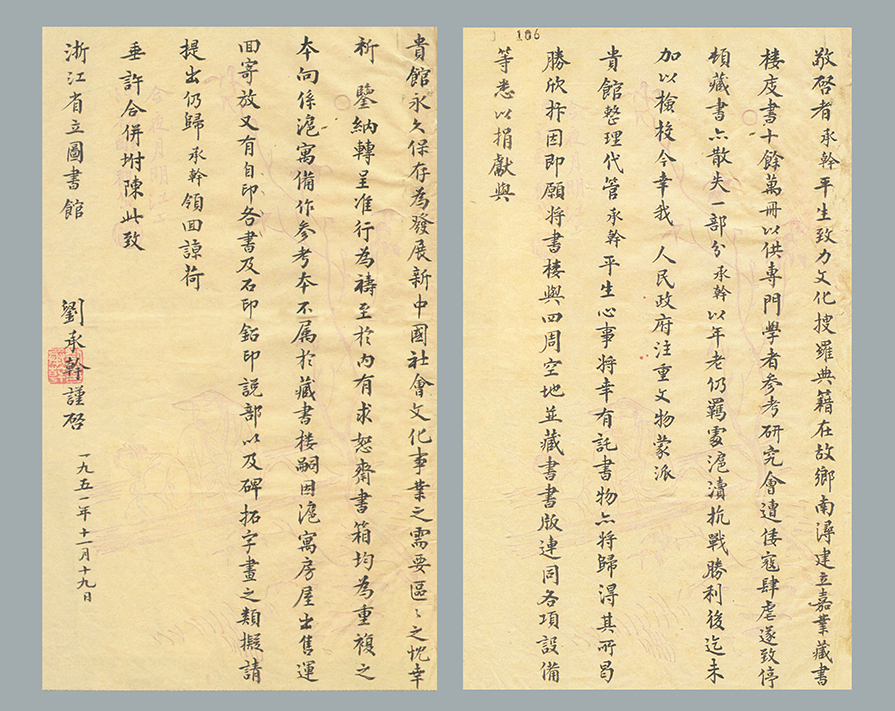 106
敬啓者承幹平生致力文化搜羅典籍在故鄉南潯建立嘉業藏書
楼庋書十餘萬冊以供專門學者參考研究會遭倭寇肆虐遂致停
頓藏書亦散失一部分承幹以年老仍羁處滬瀆抗戰勝利後迄未
加以檢校今幸我 人民政府注重文物蒙派
貴館整理代管承幹平生心事將幸有託書物亦將歸得其所曷
勝欣抃因即願将書楼與四周空地並藏書書版連同各項設備
等悉以捐獻與
貴館永久保存為發展新中國社會文化事業之需要區〻之忱幸
祈 鑒納轉呈准行為禱至於内有求恕齋書箱均為重複之
本向係滬寓備作參考本不属於藏書楼嗣因滬寓房屋出售運
回寄放又有自印各書及石印鉛印說部以及碑拓字畫之類擬請
提出仍歸承幹領回諒荷
垂許合併坿陳此致
浙江省立圖書館
劉承幹謹啓
一九五一年十一月十九日